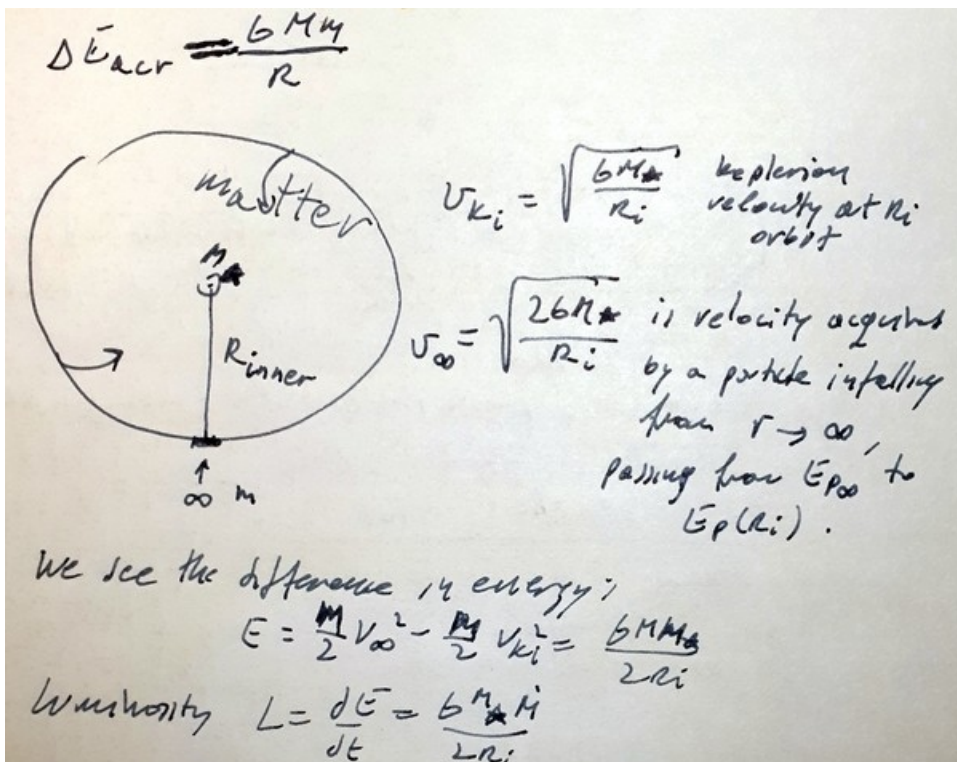 ΔE_acr = GMm / R
matter
M★
R_inner
↑
∞ m
v_Ki = √(GM★ / Ri) keplerian
velocity at Ri
orbit
v_∞ = √(2GM★ / Ri) is velocity acquired
by a particle infalling
from r → ∞,
passing from E_p∞ to
E_p(Ri).
We see the difference in energy:
E = M/2 V_∞² - M/2 V_Ki² = GMM★ / 2Ri
Luminosity L = dE/dt = GM★Ṁ / 2Ri